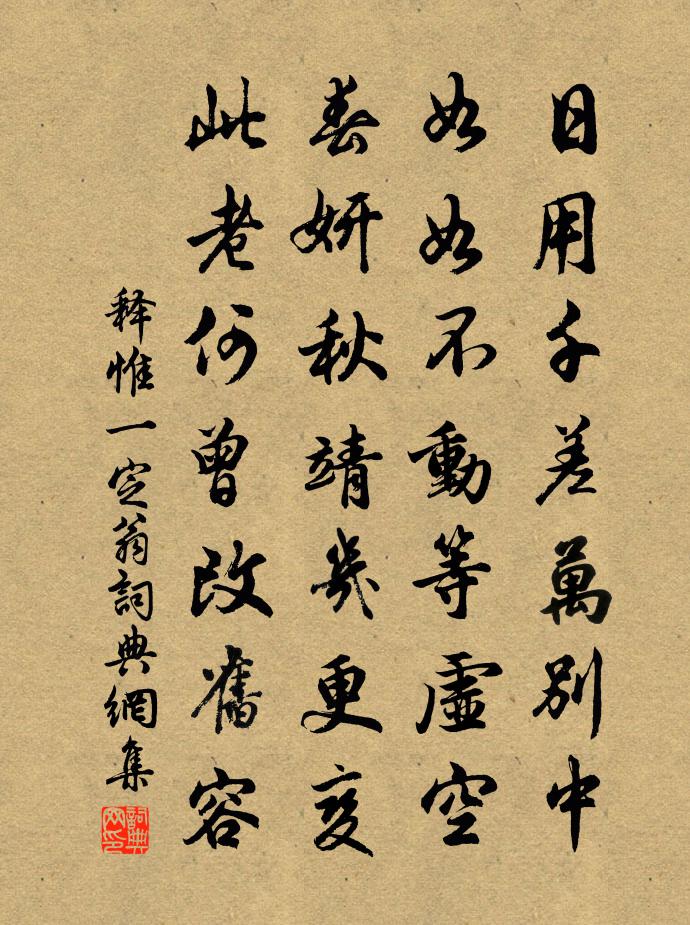 日用千差萬別中
如如不動等虛空
春妍秋靖幾更变
此老何曾改舊容
释惟一定翁詞典網集
詞典网印